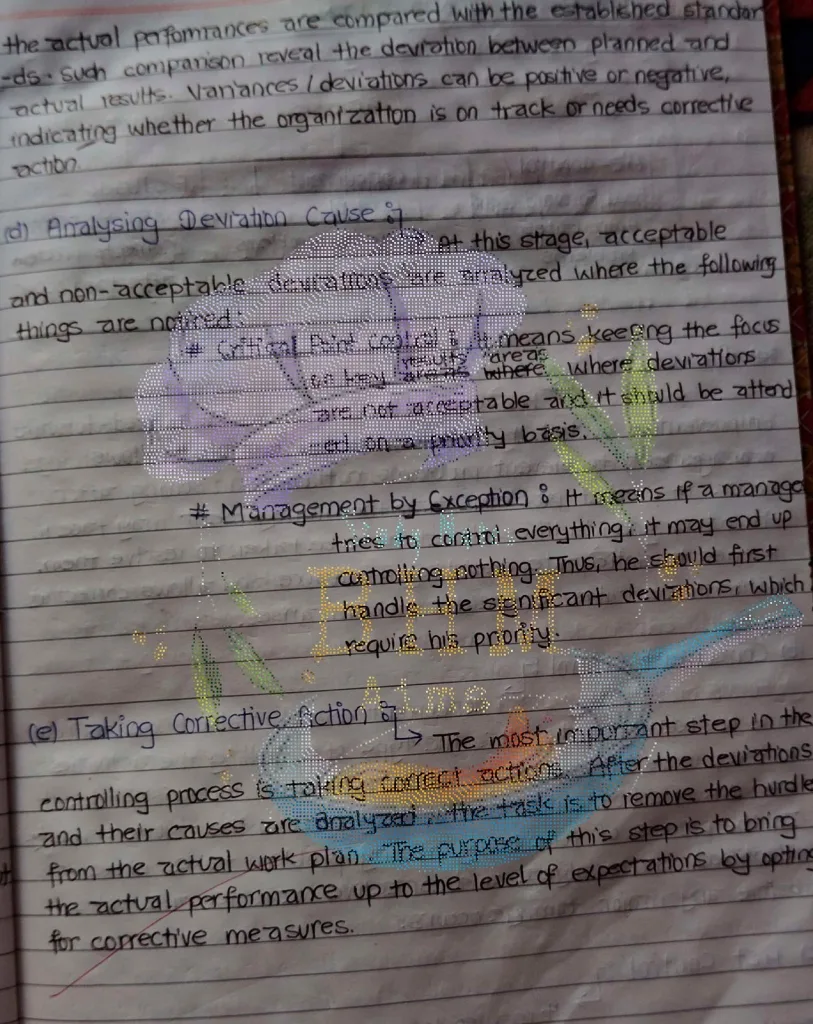 the actual perfomrances are compared with the established standar
-ds. Such comparison reveal the deviation between planned and
actual results. Variances / deviations can be positive or negative,
indicating whether the organization is on track or needs corrective
action.
(d) Analysing Deviation Cause :
At this stage, acceptable
and non-acceptable deviations are analyzed where the following
things are noticed:
# Critical Point control : It means keeping the focus
results areas
on key where where deviations
are not acceptable and it should be attend
-ed on a priority basis.
# Management by Exception : It means if a manage
tries to control everything, it may end up
controlling nothing. Thus, he should first
handle the significant deviations, which
require his priority.
BHM
Aims
(e) Taking Corrective Action :
→ The most important step in the
controlling process is taking correct actions. After the deviations
and their causes are analyzed, the task is to remove the hurdle
from the actual work plan. The purpose of this step is to bring
the actual performance up to the level of expectations by optin
for corrective measures.